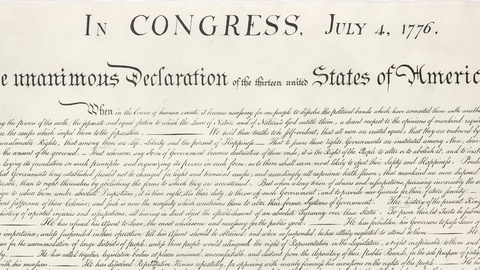 In CONGRESS, July 4, 1776.
e unanimous Declaration of the thirteen united States of Americ
When in the Course of human events, it becomes necessary for one people to dissolve the political bands which have connected them with
the powers of the earth, the separate and equal station to which the Laws of Nature and of Nature's God entitle them, a decent respect to the opinions of mankind requires
the causes which impel them to the separation. — We hold these truths to be self-evident, that all men are created equal, that they are endowed by
unalienable Rights, that among these are Life, Liberty and the pursuit of Happiness. — That to secure these rights, Governments are instituted among Men,
the consent of the governed, — That whenever any Form of Government becomes destructive of these ends, it is the Right of the People to alter or to abolish it, and to
laying its foundation on such principles and organizing its powers in such form, as to them shall seem most likely to effect their Safety and Happiness.
that Governments long established should not be changed for light and transient causes; and accordingly all experience hath shewn, that mankind are more disposed
than to right themselves by abolishing the forms to which they are accustomed. But when a long train of abuses and usurpations, pursuing invariably the
to reduce them under absolute Despotism, it is their right, it is their duty, to throw off such Government, and to provide new Guards for their future security. —
sufferance of these Colonies; and such is now the necessity which constrains them to alter their former Systems of Government. The history of the present King
history of repeated injuries and usurpations, all having in direct object the establishment of an absolute Tyranny over these States. To prove this, let Facts be
He has refused his Assent to Laws, the most wholesome and necessary for the public good. — He has forbidden his Governors to pass Laws
importance, unless suspended in their operation till his Assent should be obtained; and when so suspended, he has utterly neglected to attend to them. — He
for the accommodation of large districts of people, unless those people would relinquish the right of Representation in the Legislature, a right inestimable to them and
— He has called together legislative bodies at places unusual, uncomfortable, and distant from the depository of their Public Records, for the sole purpose of
with his measures. — He has dissolved Representative Houses repeatedly, for opposing with manly firmness his invasions on the rights of the people. — He